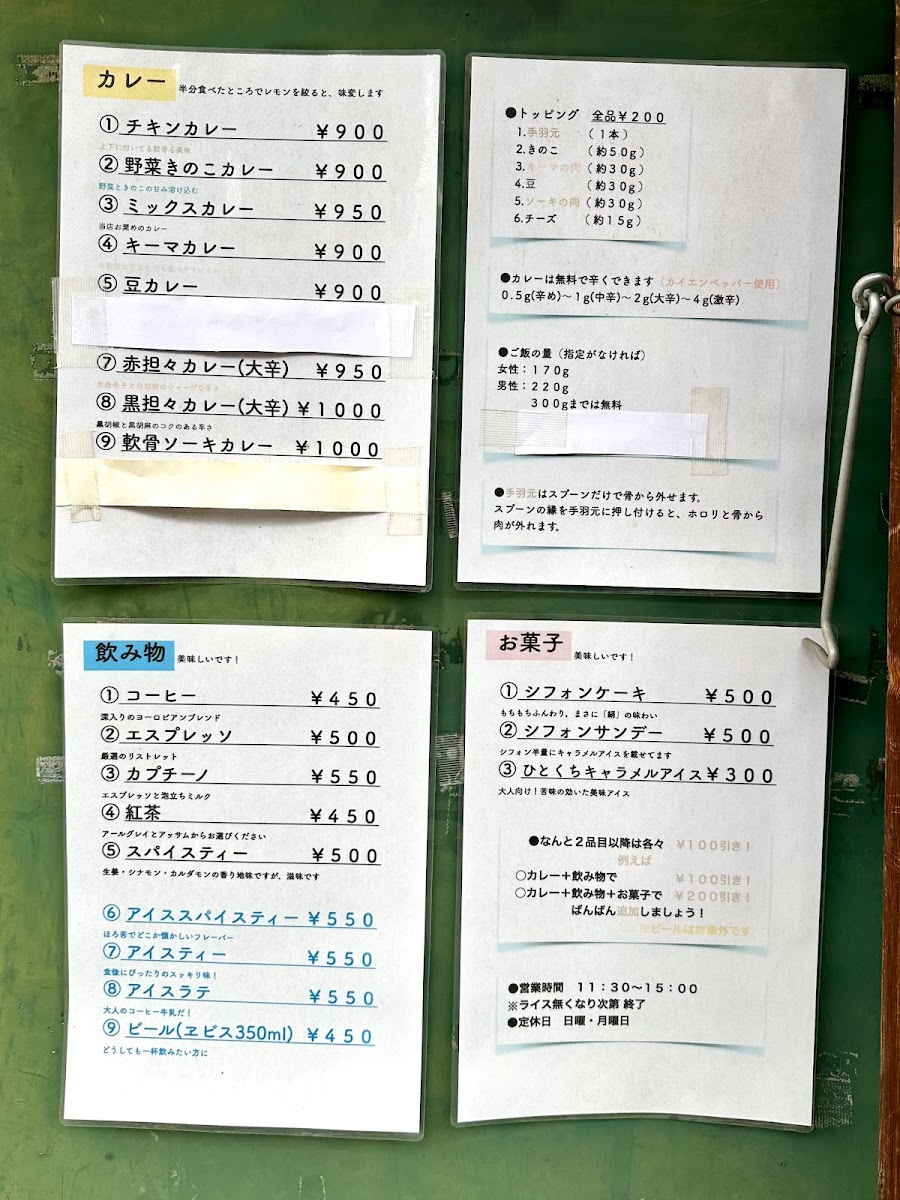 カレー 半分食べたところでレモンを絞ると、味変します
① チキンカレー ￥900
上下に付いてる軟骨も美味
② 野菜きのこカレー ￥900
野菜ときのこの甘み溶け込む
③ ミックスカレー ￥950
当店お奨めのカレー
④ キーマカレー ￥900
⑤ 豆カレー ￥900
⑦ 赤担々カレー(大辛) ￥950
赤唐辛子と白胡麻のシャープな辛さ
⑧ 黒担々カレー(大辛) ￥1000
黒胡椒と黒胡麻のコクのある辛さ
⑨ 軟骨ソーキカレー ￥1000
●トッピング 全品￥200
1.手羽元 （1本）
2.きのこ （約50g）
3.キーマの肉（約30g）
4.豆 （約30g）
5.ソーキの肉（約30g）
6.チーズ （約15g）
●カレーは無料で辛くできます（カイエンペッパー使用）
0.5g(辛め)〜1g(中辛)〜2g(大辛)〜4g(激辛)
●ご飯の量（指定がなければ）
女性：170g
男性：220g
300gまでは無料
●手羽元はスプーンだけで骨から外せます。
スプーンの縁を手羽元に押し付けると、ホロリと骨から
肉が外れます。
飲み物 美味しいです！
① コーヒー ￥450
深入りのヨーロピアンブレンド
② エスプレッソ ￥500
厳選のリストレット
③ カプチーノ ￥550
エスプレッソと泡立ちミルク
④ 紅茶 ￥450
アールグレイとアッサムからお選びください
⑤ スパイスティー ￥500
生姜・シナモン・カルダモンの香り地味ですが、滋味です
⑥ アイススパイスティー ￥550
ほろ苦でどこか懐かしいフレーバー
⑦ アイスティー ￥550
食後にぴったりのスッキリ味！
⑧ アイスラテ ￥550
大人のコーヒー牛乳だ！
⑨ ビール(ヱビス350ml) ￥450
どうしても一杯飲みたい方に
お菓子 美味しいです！
① シフォンケーキ ￥500
もちもちふんわり。まさに「絹」の味わい
② シフォンサンデー ￥500
シフォン半量にキャラメルアイスを載せてます
③ ひとくちキャラメルアイス￥300
大人向け！苦味の効いた美味アイス
●なんと２品目以降は各々 ￥100引き！
例えば
○カレー＋飲み物で ￥100引き！
○カレー＋飲み物＋お菓子で ￥200引き！
ばんばん追加しましょう！
※ビールは対象外です
●営業時間 11：30〜15：00
※ライス無くなり次第 終了
●定休日 日曜・月曜日